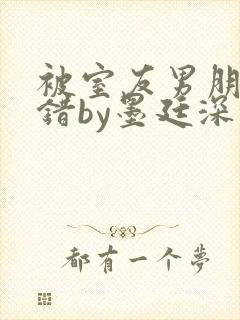 被室友男朋
错by墨廷深
都有一个夢